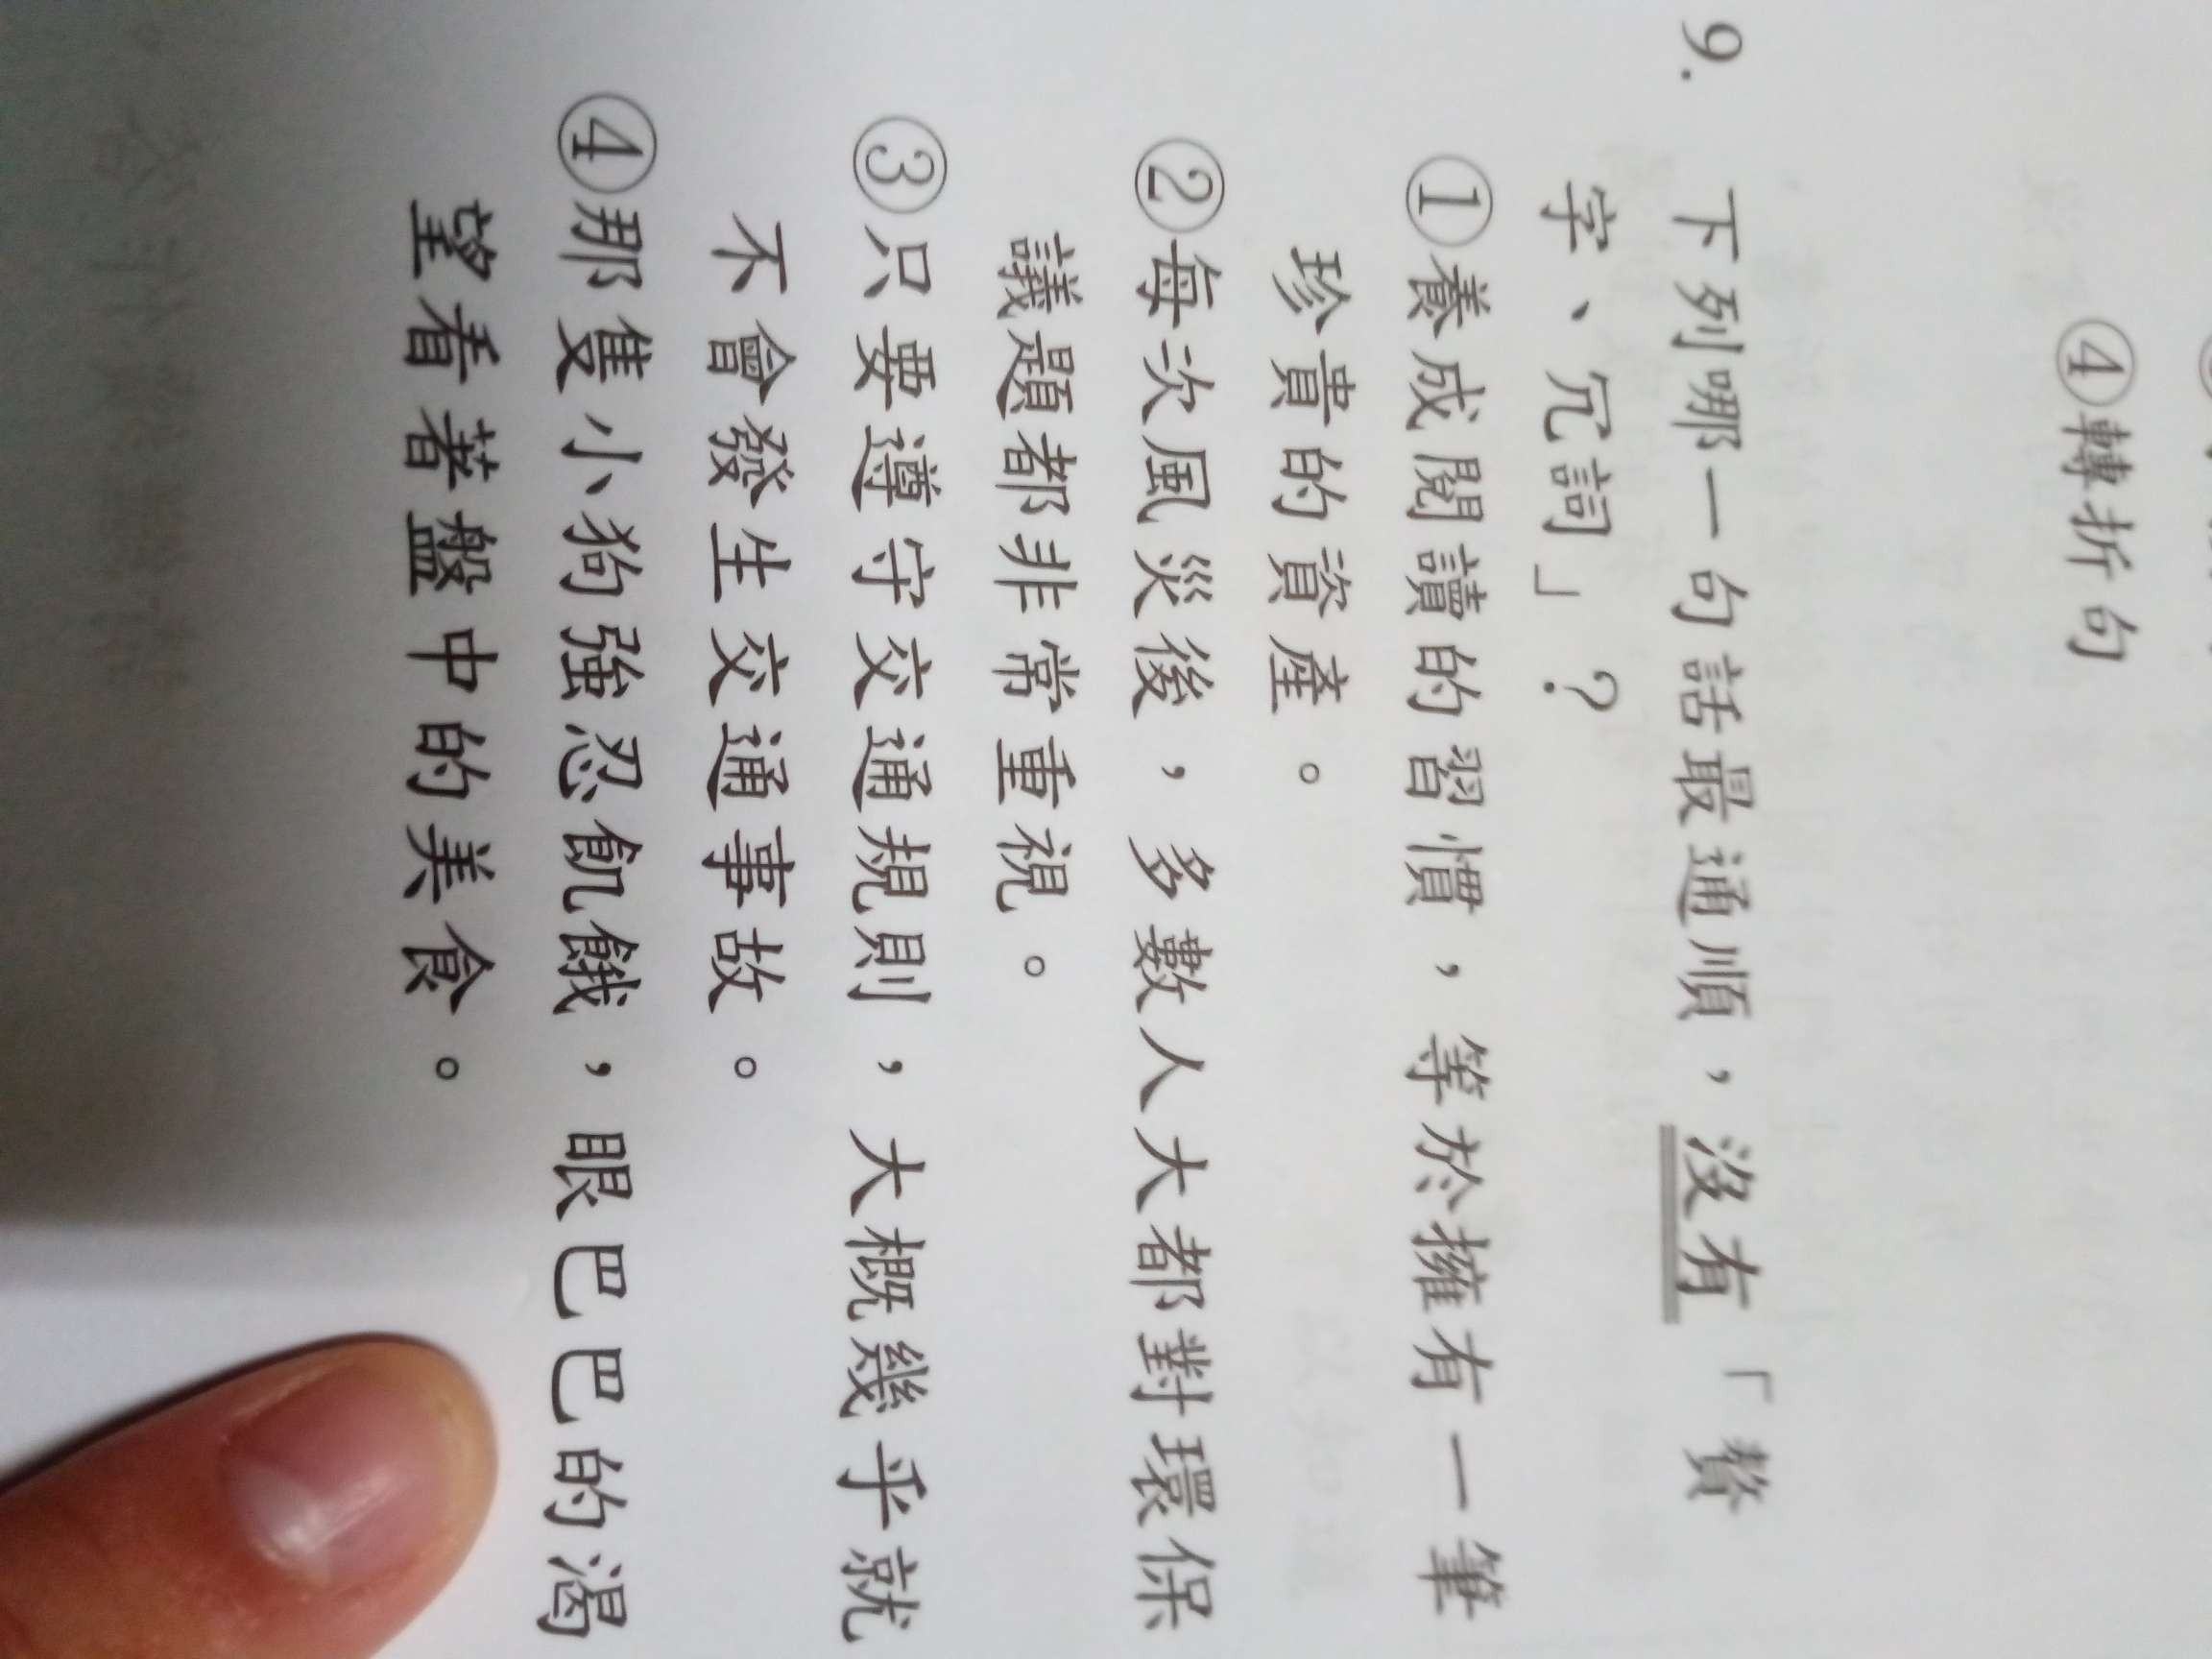 ④轉折句
9. 下列哪一句話最通順，沒有「贅
字、冗詞」？
①養成閱讀的習慣，等於擁有一筆
珍貴的資產。
②每次風災後，多數人大都對環保
議題都非常重視。
③只要遵守交通規則，大概幾乎就
不會發生交通事故。
④那隻小狗強忍飢餓，眼巴巴的渴
望看著盤中的美食。